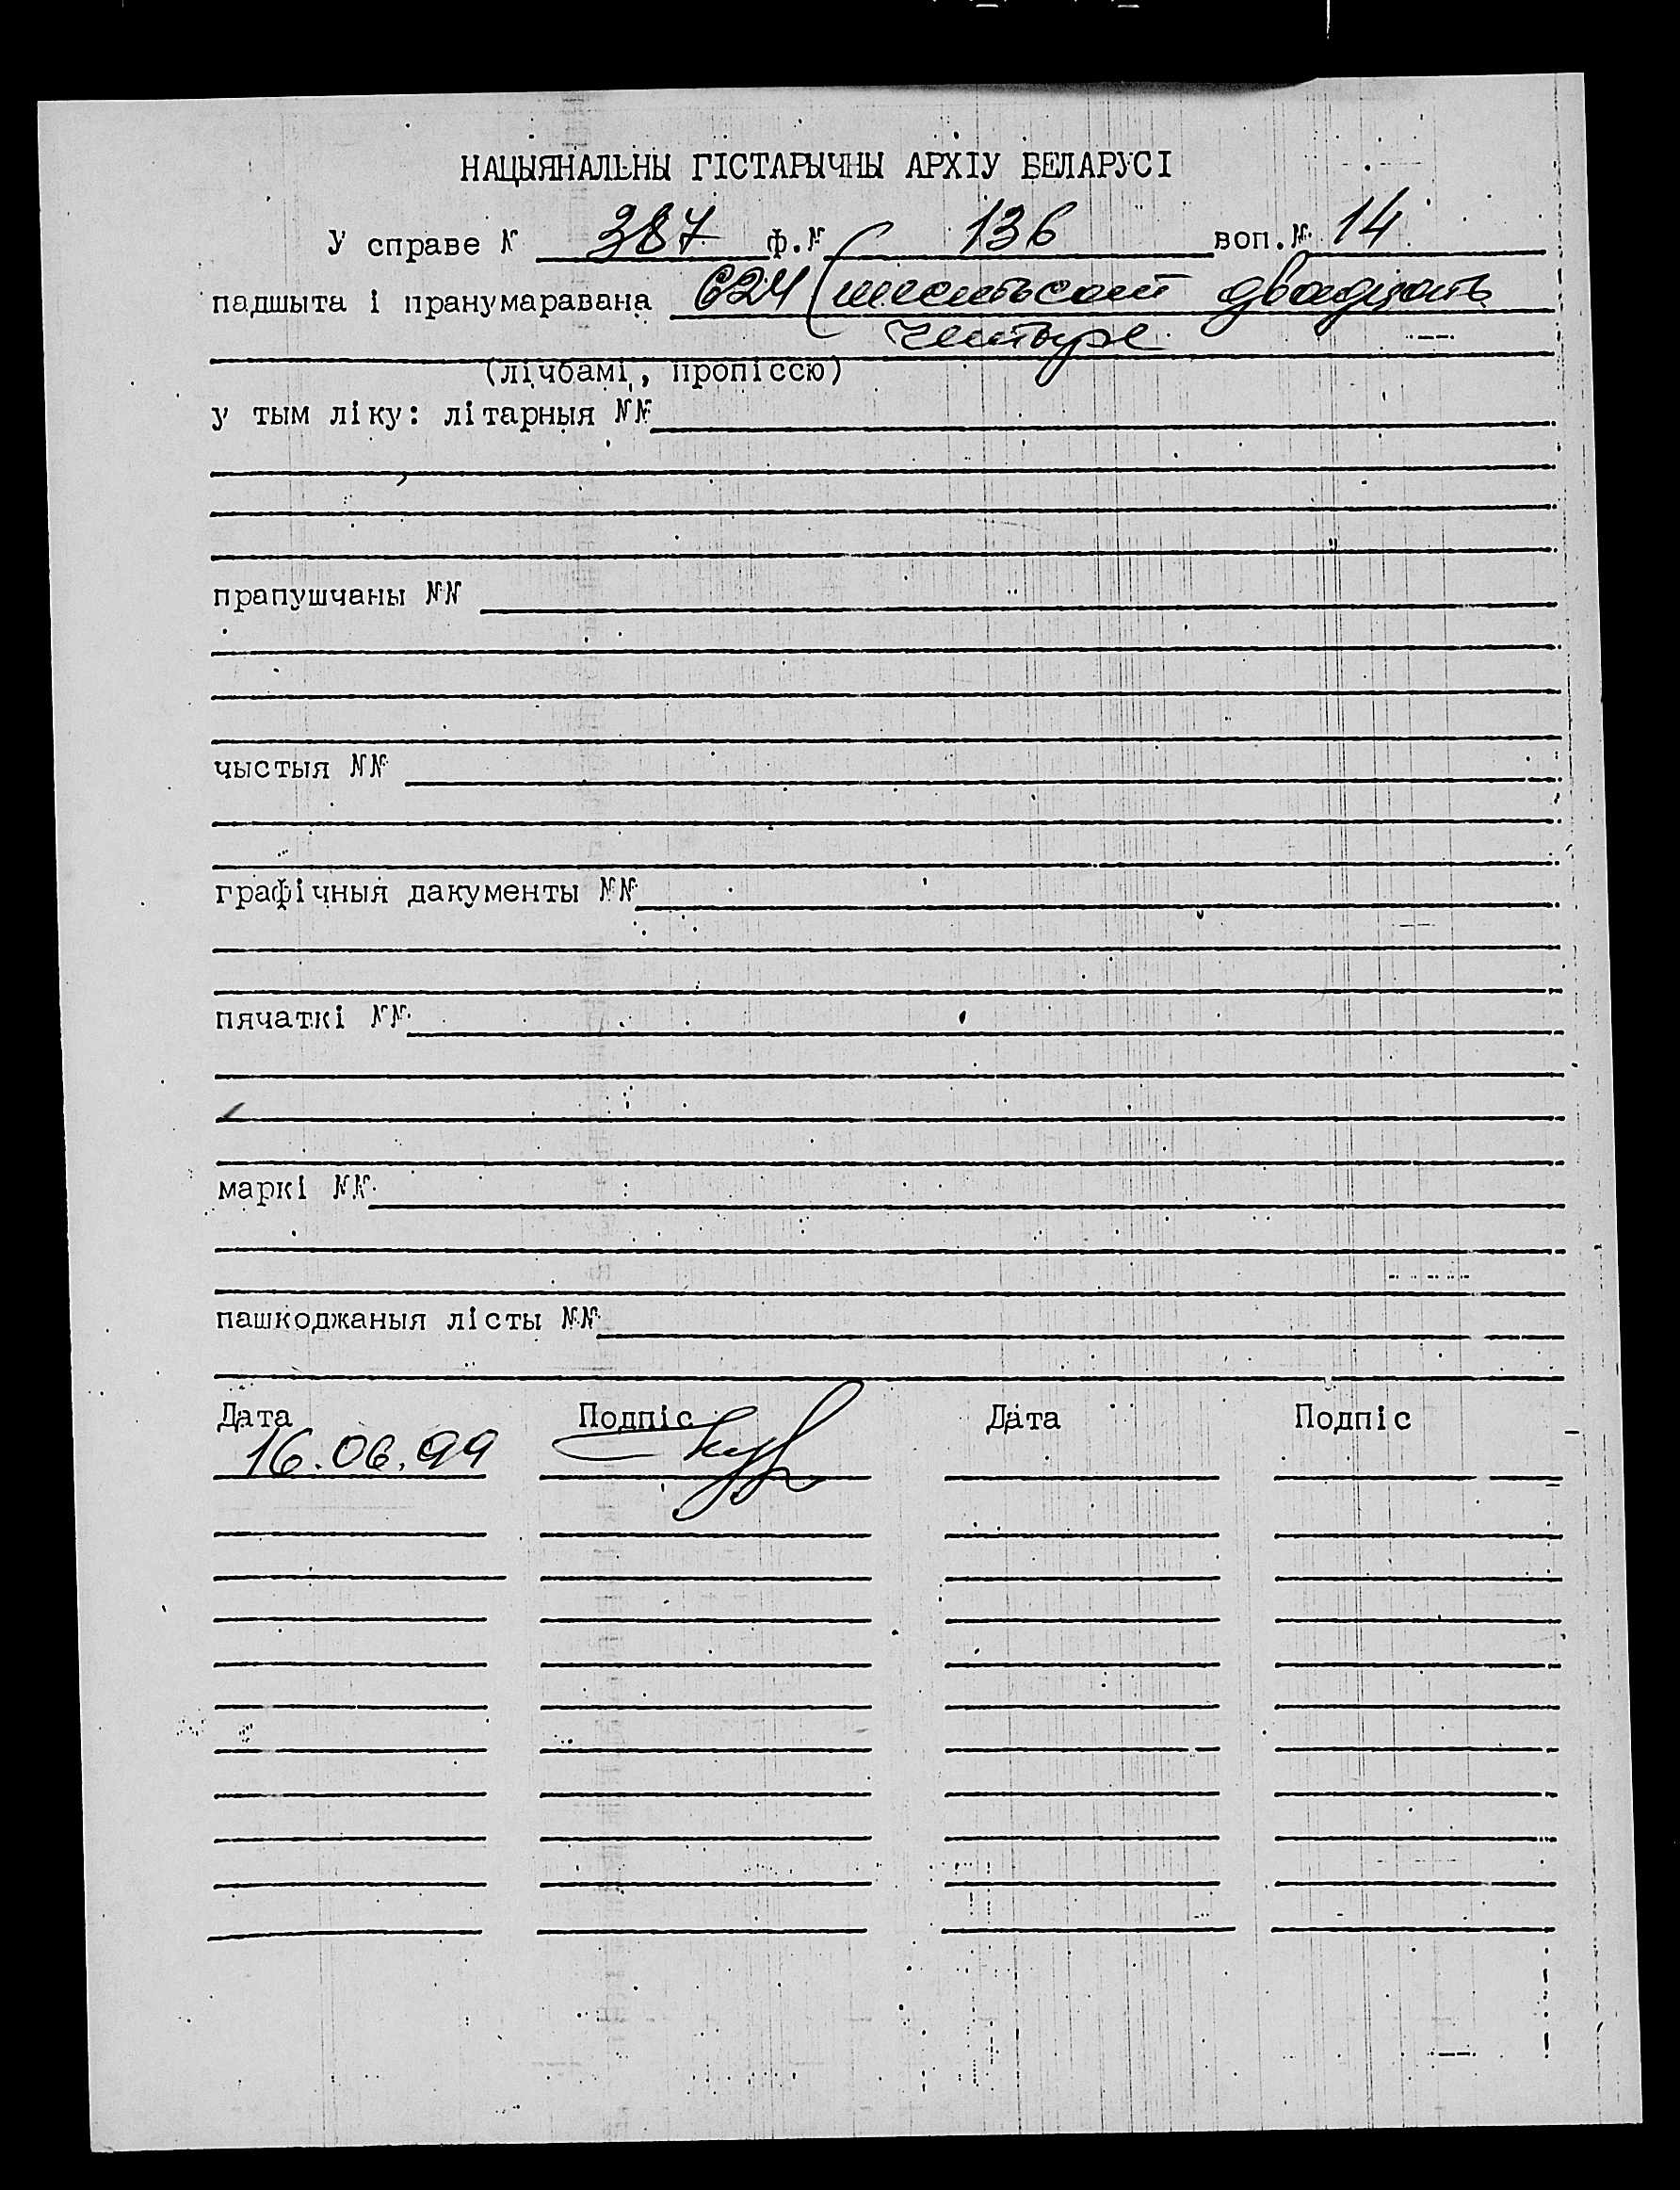 НАЦЫЯНАЛЬНЫ ГІСТАРЫЧНЫ АРХІУ БЕЛАРУСІ
У справе № 387 ф.№ 136 воп.№ 14
падшыта і пранумаравана 624 (шестьсот двадцать
четыре
(лічбамі, пропіссю)
у тым ліку: літарныя №№
прапушчаны №№
чыстыя №№
графічныя дакументы №№
пячаткі №№
маркі №№
пашкоджаныя лісты №№
Дата Подпіс Дата Подпіс
16.06.99